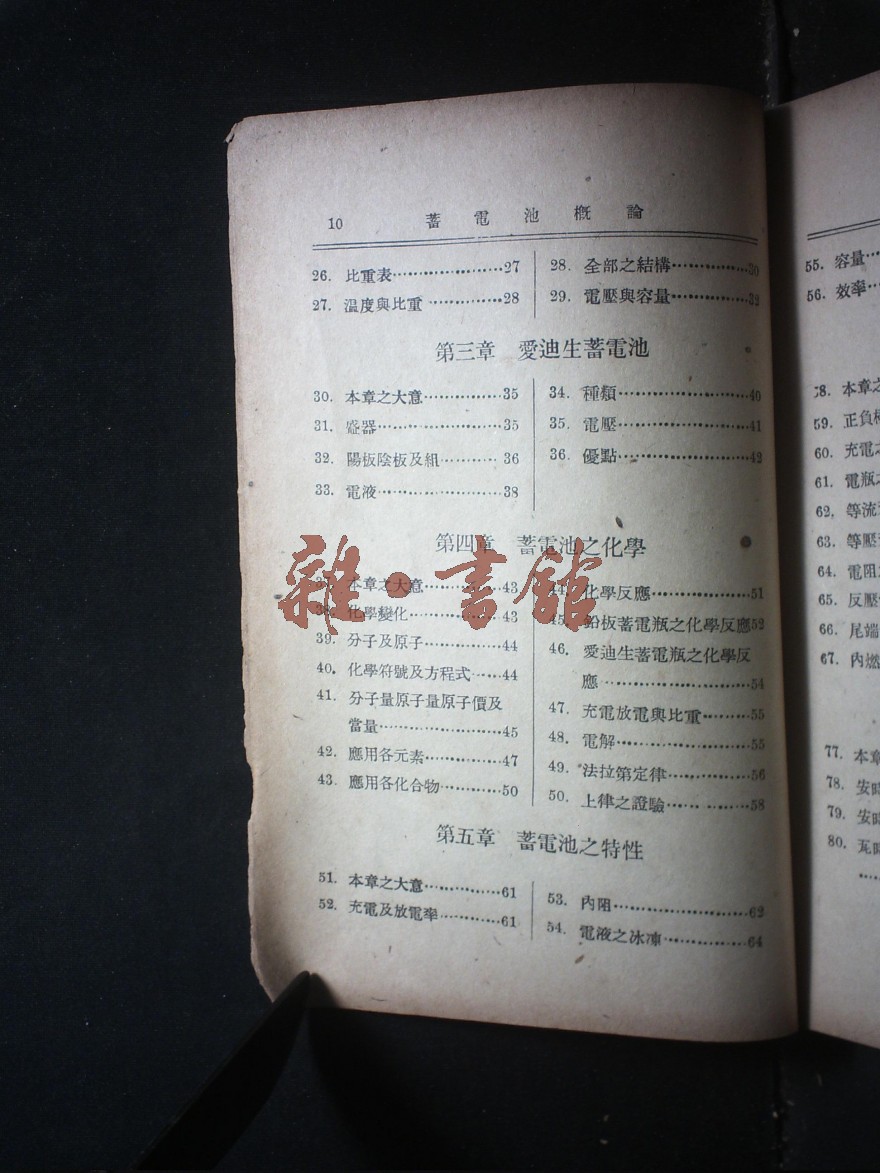 10 蓄電池概論
26. 比重表⋯⋯⋯⋯⋯⋯⋯27
27. 温度與比重⋯⋯⋯⋯⋯28
28. 全部之結構⋯⋯⋯⋯⋯30
29. 電壓與容量⋯⋯⋯⋯⋯32
第三章 愛迪生蓄電池
30. 本章之大意⋯⋯⋯⋯⋯35
31. 盛器⋯⋯⋯⋯⋯⋯⋯⋯35
32. 陽板陰板及組⋯⋯⋯⋯36
33. 電液⋯⋯⋯⋯⋯⋯⋯⋯38
34. 種類⋯⋯⋯⋯⋯⋯⋯⋯40
35. 電壓⋯⋯⋯⋯⋯⋯⋯⋯41
36. 優點⋯⋯⋯⋯⋯⋯⋯⋯42
第四章 蓄電池之化學
37. 本章之大意⋯⋯⋯⋯⋯43
38. 化學變化⋯⋯⋯⋯⋯⋯43
39. 分子及原子⋯⋯⋯⋯⋯44
40. 化學符號及方程式⋯⋯44
41. 分子量原子量原子價及
當量⋯⋯⋯⋯⋯⋯⋯⋯45
42. 應用各元素⋯⋯⋯⋯⋯47
43. 應用各化合物⋯⋯⋯⋯50
44. 化學反應⋯⋯⋯⋯⋯⋯51
45. 鉛板蓄電瓶之化學反應52
46. 愛迪生蓄電瓶之化學反
應⋯⋯⋯⋯⋯⋯⋯⋯⋯54
47. 充電放電與比重⋯⋯⋯55
48. 電解⋯⋯⋯⋯⋯⋯⋯⋯55
49. 法拉第定律⋯⋯⋯⋯⋯56
50. 上律之證驗⋯⋯⋯⋯⋯58
第五章 蓄電池之特性
51. 本章之大意⋯⋯⋯⋯⋯61
52. 充電及放電率⋯⋯⋯⋯61
53. 內阻⋯⋯⋯⋯⋯⋯⋯⋯62
54. 電液之冰凍⋯⋯⋯⋯⋯64
雜·書館
55. 容量⋯
56. 效率⋯
58. 本章之
59. 正負極
60. 充電之
61. 電瓶之
62. 等流
63. 等壓
64. 電阻
65. 反壓
66. 尾端
67. 內燃
77. 本章
78. 安時
79. 安時
80. 瓦時
⋯⋯